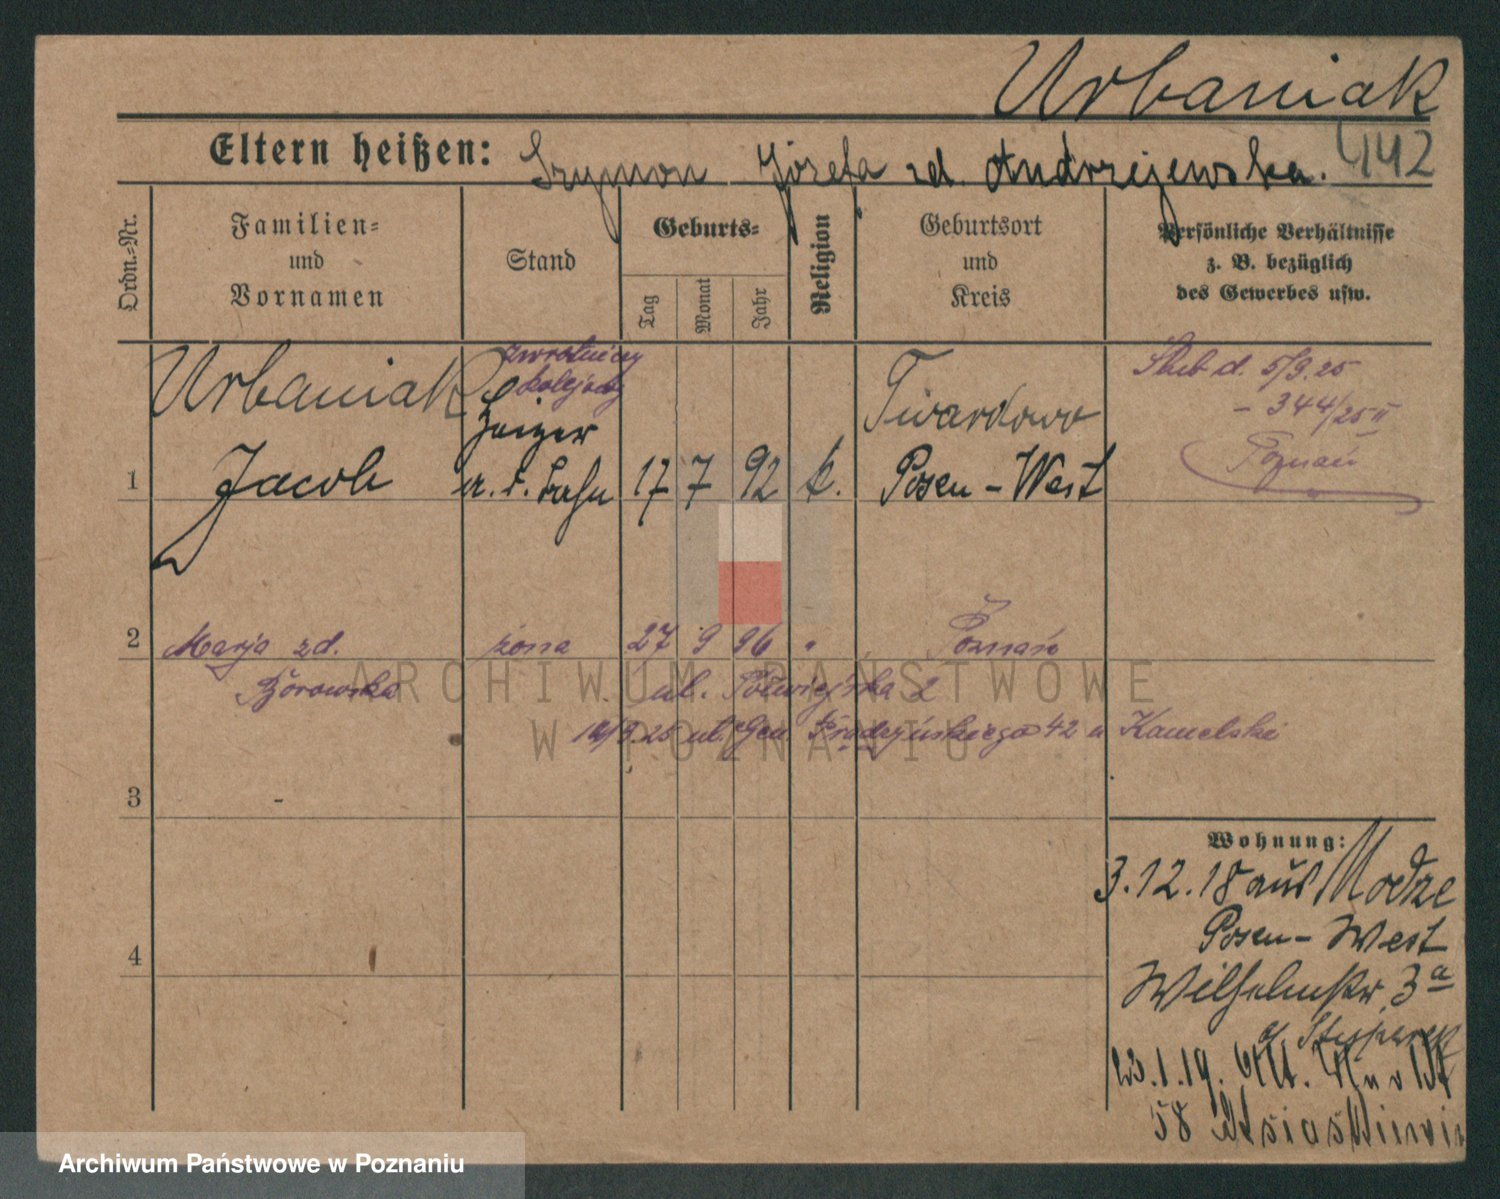 Urbaniak
442
Eltern heißen: Szymon Józefa zd. Andrzejewska.
Ordn.=Nr.
Familien=
und
Vornamen
Stand
Geburts=
Tag
Monat
Jahr
Religion
Geburtsort
und
Kreis
Persönliche Verhältnisse
z. B. bezüglich
des Gewerbes usw.
1
Urbaniak
Jacob
zwrotniczy
kolejowy
Heizer
a. d. Bahn
17 7 92 k.
Twardowo
Posen - West
Ślub d. 5/9.25
- 344/25 II
Poznań
2 Marja zd. żona 27 9 96 " Poznań
Borowska
ul. Półwiejska 2
ul. Gen. Prądzyńskiego 42 u Kamelski
3
4
Wohnung:
3.12.18 aus Modze
Posen - West
Wilhelmstr. 3a
23.1.19.
58
ARCHIWUM PAŃSTWOWE
W POZNANIU
Archiwum Państwowe w Poznaniu